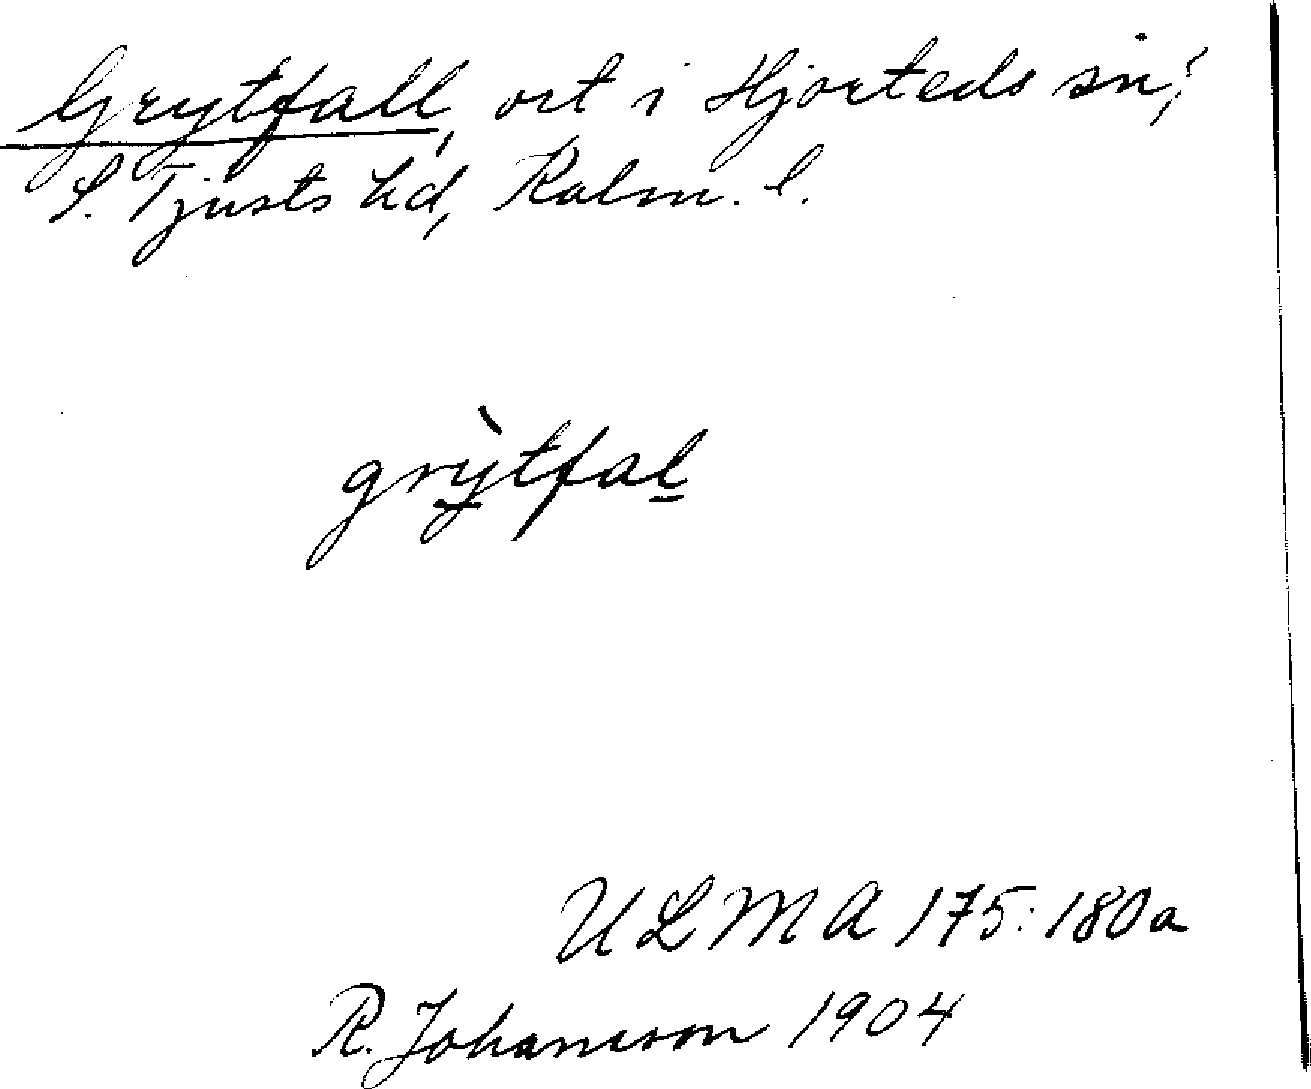 Grytfall, ort i Hjorteds sn,
S. Tjusts hd, Kalm. l.
grỳtfal
ULMA 175:180a
R. Johansson 1904